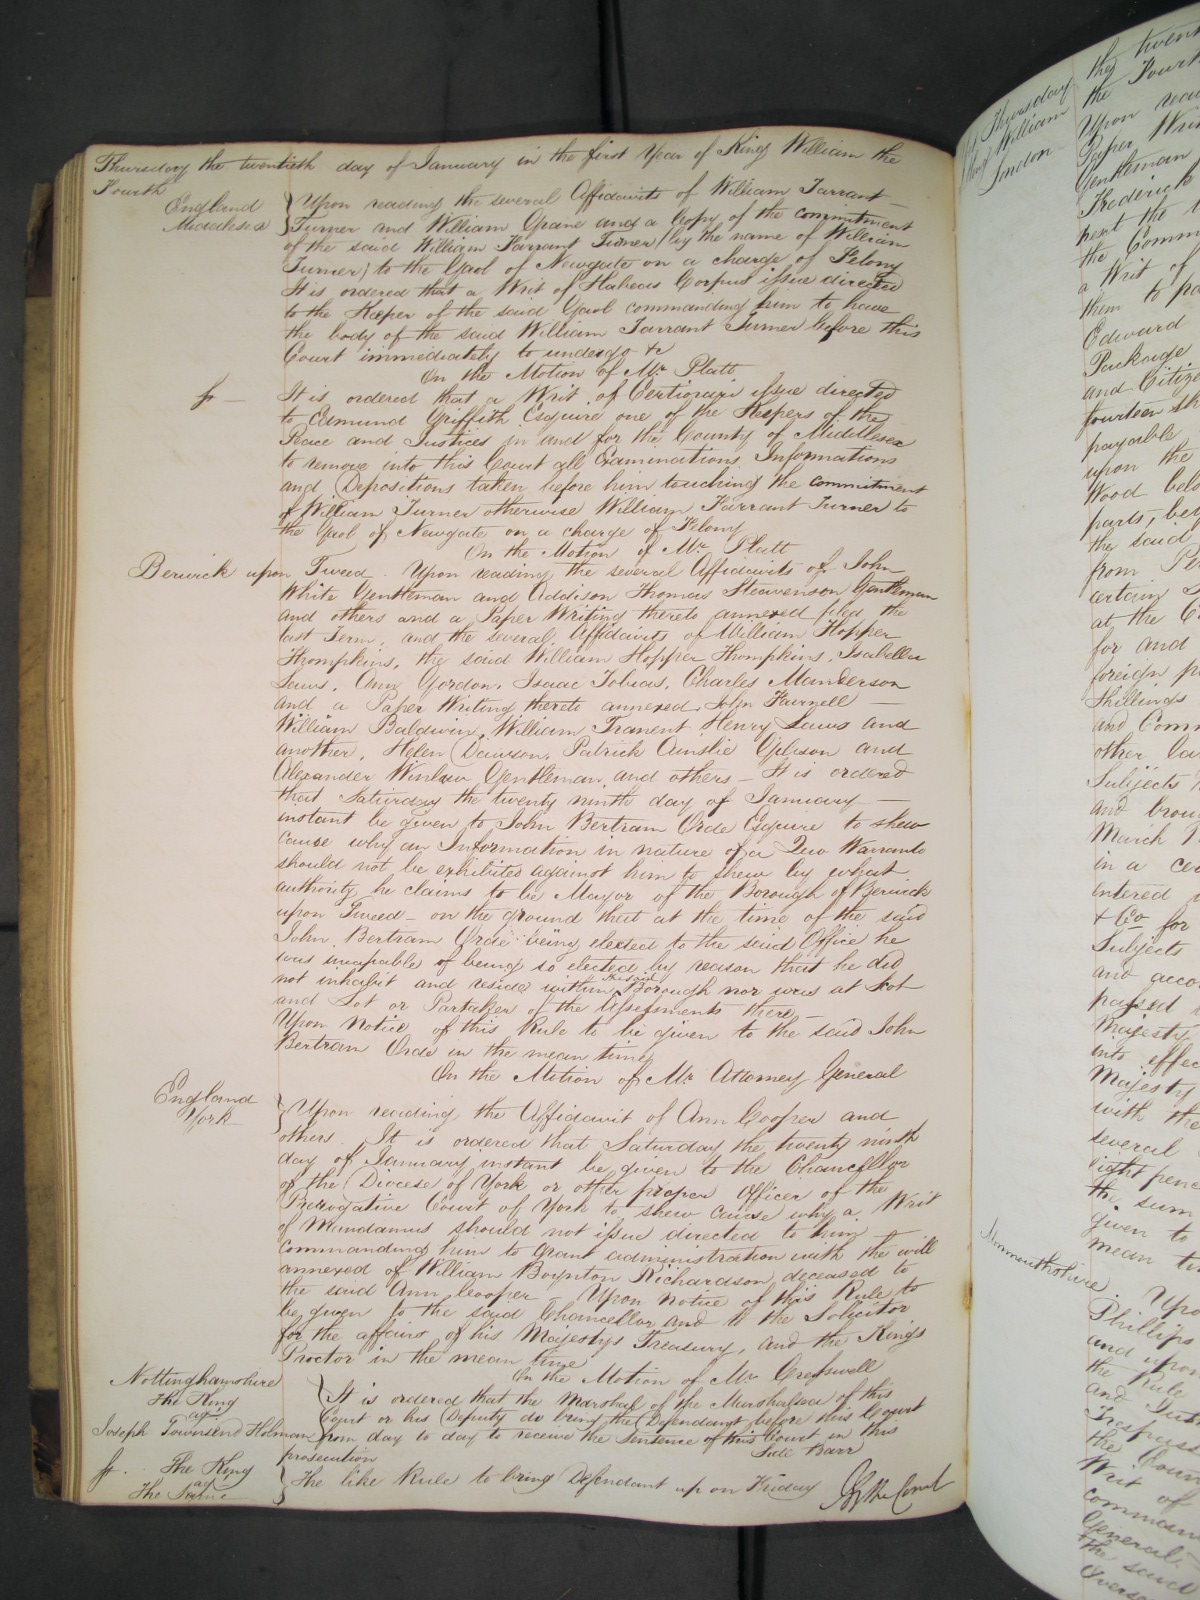 Thursday the twentieth day of January in the first Year of King William the
Fourth
England
Middlesex
Upon reading the several Affidavits of William Tarrant
Turner and William Paine and a Copy of the commitment
of the said William Tarrant Turner (by the name of William
Turner) to the Gaol of Newgate on a charge of Felony
It is ordered that a Writ of Habeas Corpus issue directed
to the Keeper of the said Gaol commanding him to have
the body of the said William Tarrant Turner before this
Court immediately to undergo &c
On the Motion of Mr. Platt
It is ordered that a Writ of Certiorari issue directed
to Edmund Griffith Esquire one of the Keepers of the
Peace and Justices in and for the County of Middlesex
to remove into this Court all Examinations Informations
and Depositions taken before him touching the commitment
of William Turner otherwise William Tarrant Turner to
the Gaol of Newgate on a charge of Felony
On the Motion of Mr. Platt
Berwick upon Tweed. Upon reading the several Affidavits of John
White Gentleman and Addison Thomas Steavenson Gentleman
and others and a Paper Writing thereto annexed filed the
last Term, and the several Affidavits of William Hopper
Thompkins, the said William Hopper Thompkins, Isabella
Laws, Ann Gordon, Isaac Tobias, Charles Manderson
and a Paper Writing thereto annexed, John
William Baldwin, William Tranent Henry Laws and
another, Helen Dawson, Patrick Ainslie Gibson and
Alexander Winlaw Gentleman and others – It is ordered
that Saturday the twenty ninth day of January –
instant be given to John Bertram Orde Esquire to shew
cause why an Information in nature of a Quo Warranto
should not be exhibited against him to shew by what
authority he claims to be Mayor of the Borough of Berwick
upon Tweed – on the ground that at the time of the said
John Bertram Orde being elected to the said Office he
was incapable of being so elected by reason that he did
not inhabit and reside within the said Borough nor was at Scot
and Lot or Partaker of the Assessments there –
Upon Notice of this Rule to be given to the said John
Bertram Orde in the mean time
On the Motion of Mr. Attorney General
England
York
Upon reading the Affidavit of Ann Cooper and
others. It is ordered that Saturday the twenty ninth
day of January instant be given to the Chancellor
of the Diocese of York or other proper Officer of the
Prerogative Court of York to shew cause why a Writ
of Mandamus should not issue directed to him –
commanding him to grant administration with the will
annexed of William Boynton Richardson deceased to
the said Ann Cooper – Upon notice of this Rule to
be given to the said Chancellor and to the Solicitor
for the affairs of his Majestys Treasury, and the Kings
Proctor in the mean time
On the Motion of Mr. Cresswell
Nottinghamshire
The King
agt
Joseph Townsend Holman
It is ordered that the Marshal of the Marshalsea of this
Court or his Deputy do bring the Defendant before this Court
from day to day to receive the Sentence of this Court in this
prosecution
Side Barr
The King
agt
The Same
The like Rule to bring Defendant up on Friday
By the Court
Thursday
William
London
they twent
the Fourt
Upon rea
Paper Writ
Gentleman
Frederick
next the
the Comm
a Writ of
them to pa
Edward
Package
and Citize
fourteen shi
payable
upon the
Wood belo
parts, bet
they said
from Pe
certain
at the C
for and
foreign p
Shillings
and Comm
other la
Subjects
and brou
March
in a cer
entered
& Co for
Subjects
and acco
passed
Majesty
into effec
Majesty
with the
several
eight penc
the sum
given to
mean ti
Monmouthshire. Upo
Phillips
and upon
the Rule
and
Trespass
the Coun
Writ of
comman
General
the said
Overse